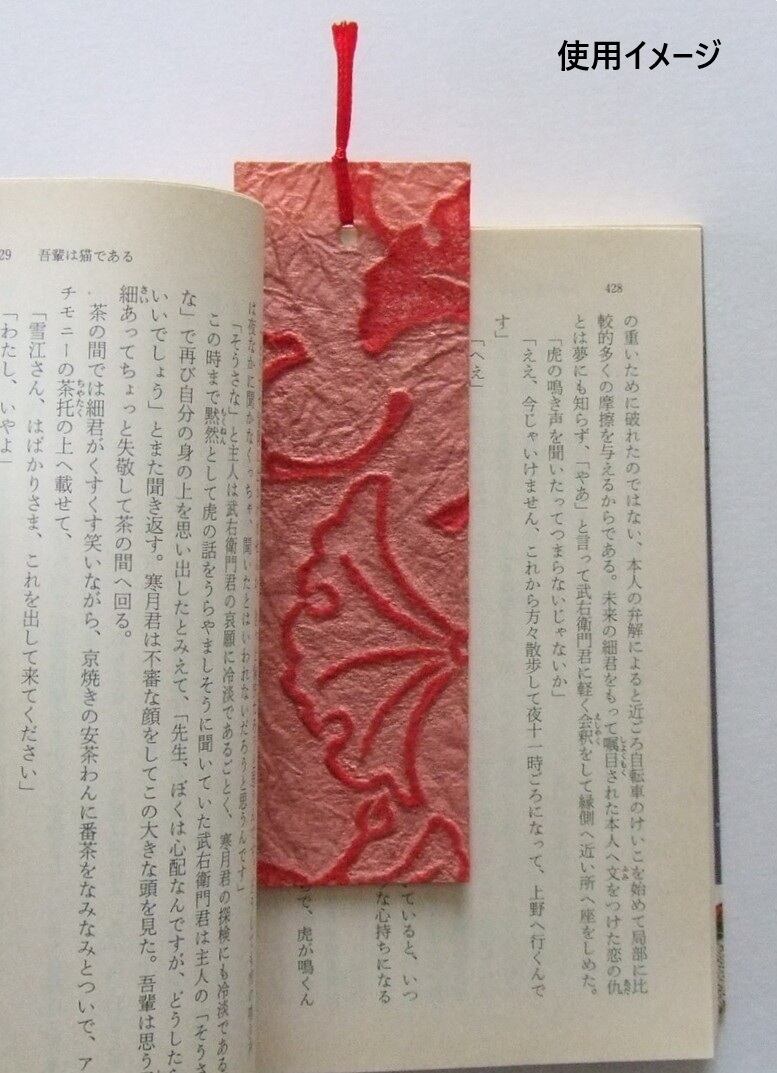 使用イメージ
428
の重いために破れたのではない、本人の弁解によると近ごろ自転車のけいこを始めて局部に比
較的多くの摩擦を与えるからである。未来の細君をもって嘱目された本人へ文をつけた恋の仇
とは夢にも知らず、「やあ」と言って武右衛門君に軽く会釈をして縁側へ近い所へ座をしめた。
「虎の鳴き声を聞いたってつまらないじゃないか」
「ええ、今じゃいけません、これから方々散歩して夜十一時ごろになって、上野へ行くんで
す」
「へえ」
ていると、いつ
な心持ちになる
で、虎が鳴くん
29 吾輩は猫である
は夜なかに聞かなくっちゃ、聞いたとはいわれないだろうと思うんです」
「そうさな」と主人は武右衛門君の哀願に冷淡であるごとく、寒月君の探検にも冷淡である
この時まで黙然として虎の話をうらやましそうに聞いていた武右衛門君は主人の「そうさ
な」で再び自分の身の上を思い出したとみえて、「先生、ぼくは心配なんですが、どうしたら
いいでしょう」とまた聞き返す。寒月君は不審な顔をしてこの大きな頭を見た。吾輩は思う
細あってちょっと失敬して茶の間へ回る。
茶の間では細君がくすくす笑いながら、京焼きの安茶わんに番茶をなみなみとついで、ア
チモニーの茶托の上へ載せて、
「雪江さん、はばかりさま、これを出して来てください」
「わたし、いやよ」